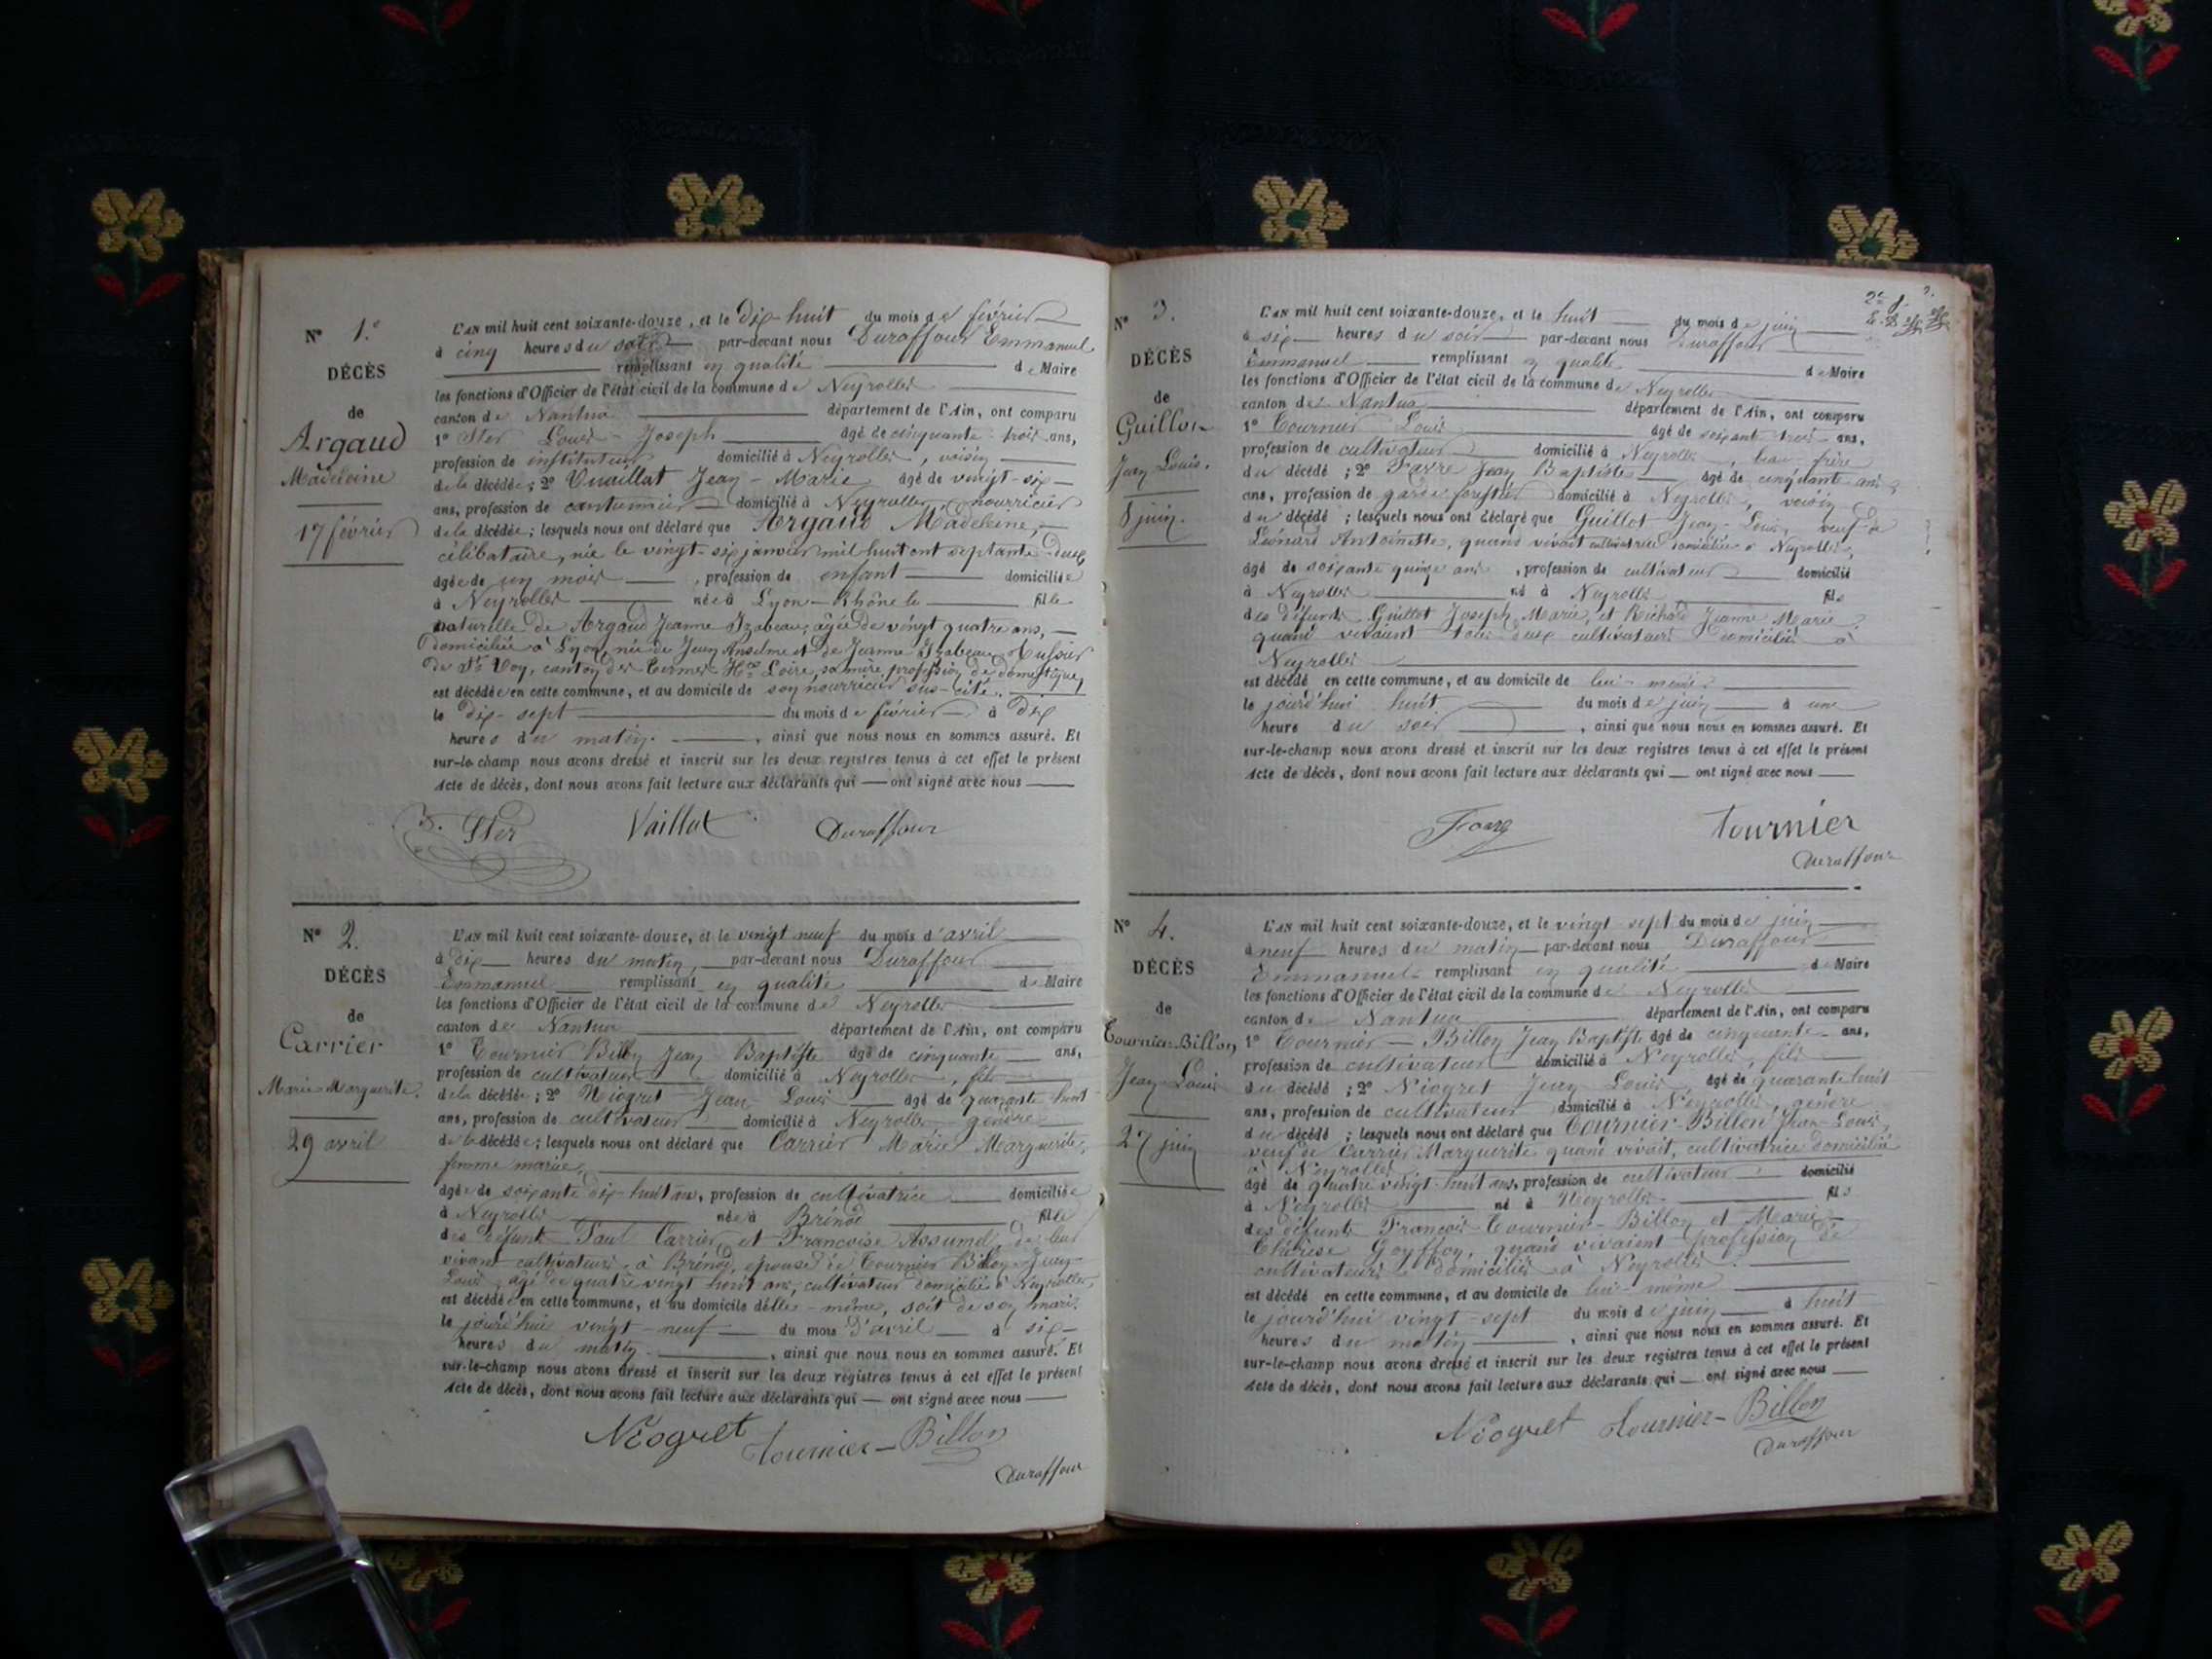 N° 1.
DÉCÈS
de
Argaud
Madeleine
17 février
L'AN mil huit cent soixante-douze, et le dix-huit du mois de février
à cinq heures du soir par-devant nous Duraffour Emmanuel
remplissant en qualité de Maire
les fonctions d'Officier de l'état civil de la commune de Neyrolles
canton de Nantua département de l'Ain, ont comparu
1° Ster Louis-Joseph âgé de cinquante-trois ans,
profession de instituteur domicilié à Neyrolles, voisin
de la décédée; 2° Vuaillat Jean-Marie âgé de vingt-six
ans, profession de cantonnier domicilié à Neyrolles, nourricier
de la décédée; lesquels nous ont déclaré que Argaud Madeleine,
célibataire, née le vingt-six janvier mil huit cent septante-deux,
âgée de un mois, profession de enfant domiciliée
à Neyrolles née à Lyon-Rhône le fille
naturelle de Argaud Jeanne Izabeau, âgée de vingt quatre ans,
domiciliée à Lyon, née de Jean Anselme et de Jeanne Izabeau
de St Voy, canton de Hte Loire, sa mère profession de domestique,
est décédée en cette commune, et au domicile de son nourricier sus-cité.
le dix-sept du mois de février à dix
heures du matin, ainsi que nous nous en sommes assuré. Et
sur-le-champ nous avons dressé et inscrit sur les deux registres tenus à cet effet le présent
Acte de décès, dont nous avons fait lecture aux déclarants qui — ont signé avec nous
Ster Vaillat Duraffour
N° 2.
DÉCÈS
de
Carrier
Marie-Marguerite.
29 avril
L'AN mil huit cent soixante-douze, et le vingt neuf du mois d'avril
à dix heures du matin, par-devant nous Duraffour
Emmanuel remplissant en qualité de Maire
les fonctions d'Officier de l'état civil de la commune de Neyrolles
canton de Nantua département de l'Ain, ont comparu
1° Tournier Billon Jean Baptiste âgé de cinquante ans,
profession de cultivateur domicilié à Neyrolles, fils
de la décédée; 2° Niogret Jean Louis âgé de quarante huit
ans, profession de cultivateur domicilié à Neyrolles, gendre
de la décédée; lesquels nous ont déclaré que Carrier Marie Marguerite,
femme mariée,
âgée de soixante dix-huit ans, profession de cultivatrice domiciliée
à Neyrolles née à Brénod fille
des défunts Paul Carrier et Françoise Assumel, de leur
vivant cultivateurs à Brénod, épouse de Tournier Billon Jean-
Louis, âgé de quatre vingt huit ans, cultivateur domicilié à Neyrolles,
est décédée en cette commune, et au domicile d'elle-même, soit de son mari.
le jourd'hui vingt-neuf du mois d'avril à six
heures du matin, ainsi que nous nous en sommes assuré. Et
sur-le-champ nous avons dressé et inscrit sur les deux registres tenus à cet effet le présent
Acte de décès, dont nous avons fait lecture aux déclarants qui — ont signé avec nous
Niogret Tournier-Billon
Duraffour
N° 3.
DÉCÈS
de
Guillot
Jean Louis.
8 juin.
L'AN mil huit cent soixante-douze, et le huit du mois de juin
à six heures du soir par-devant nous Duraffour
Emmanuel remplissant en qualité de Maire
les fonctions d'Officier de l'état civil de la commune de Neyrolles
canton de Nantua département de l'Ain, ont comparu
1° Tournier Louis âgé de soixante trois ans,
profession de cultivateur domicilié à Neyrolles, beau-frère
du décédé; 2° Favre Jean Baptiste âgé de cinquante ans
ans, profession de garde forestier domicilié à Neyrolles, voisin
du décédé; lesquels nous ont déclaré que Guillot Jean-Louis, veuf de
Léonard Antoinette, quand vivait cultivatrice domiciliée à Neyrolles,
âgé de soixante quinze ans, profession de cultivateur domicilié
à Neyrolles né à Neyrolles fils
des défunts Guillot Joseph Marie, et Richard Jeanne Marie
quand vivaient tous deux cultivateurs domiciliés à
Neyrolles
est décédé en cette commune, et au domicile de lui-même
le jourd'hui huit du mois de juin à une
heure du soir, ainsi que nous nous en sommes assuré. Et
sur-le-champ nous avons dressé et inscrit sur les deux registres tenus à cet effet le présent
Acte de décès, dont nous avons fait lecture aux déclarants qui — ont signé avec nous
Tournier
Duraffour
N° 4.
DÉCÈS
de
Tournier-Billon
Jean Louis
27 juin
L'AN mil huit cent soixante-douze, et le vingt sept du mois de juin
à neuf heures du matin par-devant nous Duraffour
Emmanuel remplissant en qualité de Maire
les fonctions d'Officier de l'état civil de la commune de Neyrolles
canton de Nantua département de l'Ain, ont comparu
1° Tournier-Billon Jean Baptiste âgé de cinquante ans,
profession de cultivateur domicilié à Neyrolles, fils
du décédé; 2° Niogret Jean Louis, âgé de quarante huit
ans, profession de cultivateur domicilié à Neyrolles, gendre
du décédé; lesquels nous ont déclaré que Tournier-Billon Jean-Louis,
veuf de Carrier Marguerite quand vivait, cultivatrice domiciliée
à Neyrolles
âgé de quatre vingt-huit ans, profession de cultivateur domicilié
à Neyrolles né à Neyrolles fils
des défunts François Tournier-Billon et Marie
Thérèse Goyffon, quand vivaient profession de
cultivateurs domiciliés à Neyrolles
est décédé en cette commune, et au domicile de lui-même
le jourd'hui vingt-sept du mois de juin à huit
heures du matin, ainsi que nous nous en sommes assuré. Et
sur-le-champ nous avons dressé et inscrit sur les deux registres tenus à cet effet le présent
Acte de décès, dont nous avons fait lecture aux déclarants qui — ont signé avec nous
Niogret Tournier-Billon
Duraffour